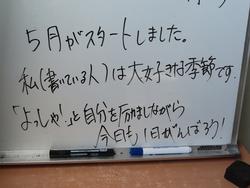 5月がスタートしました。
私(書いている人)は大好きな季節です。
「よっしゃ!」と自分を励ましながら
今日も1日がんばろう!